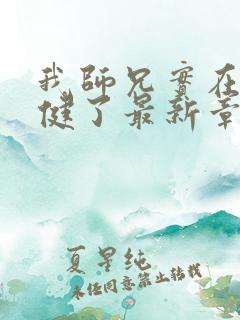 我师兄实在
健了最新章
夏星纯
未经同意禁止转载